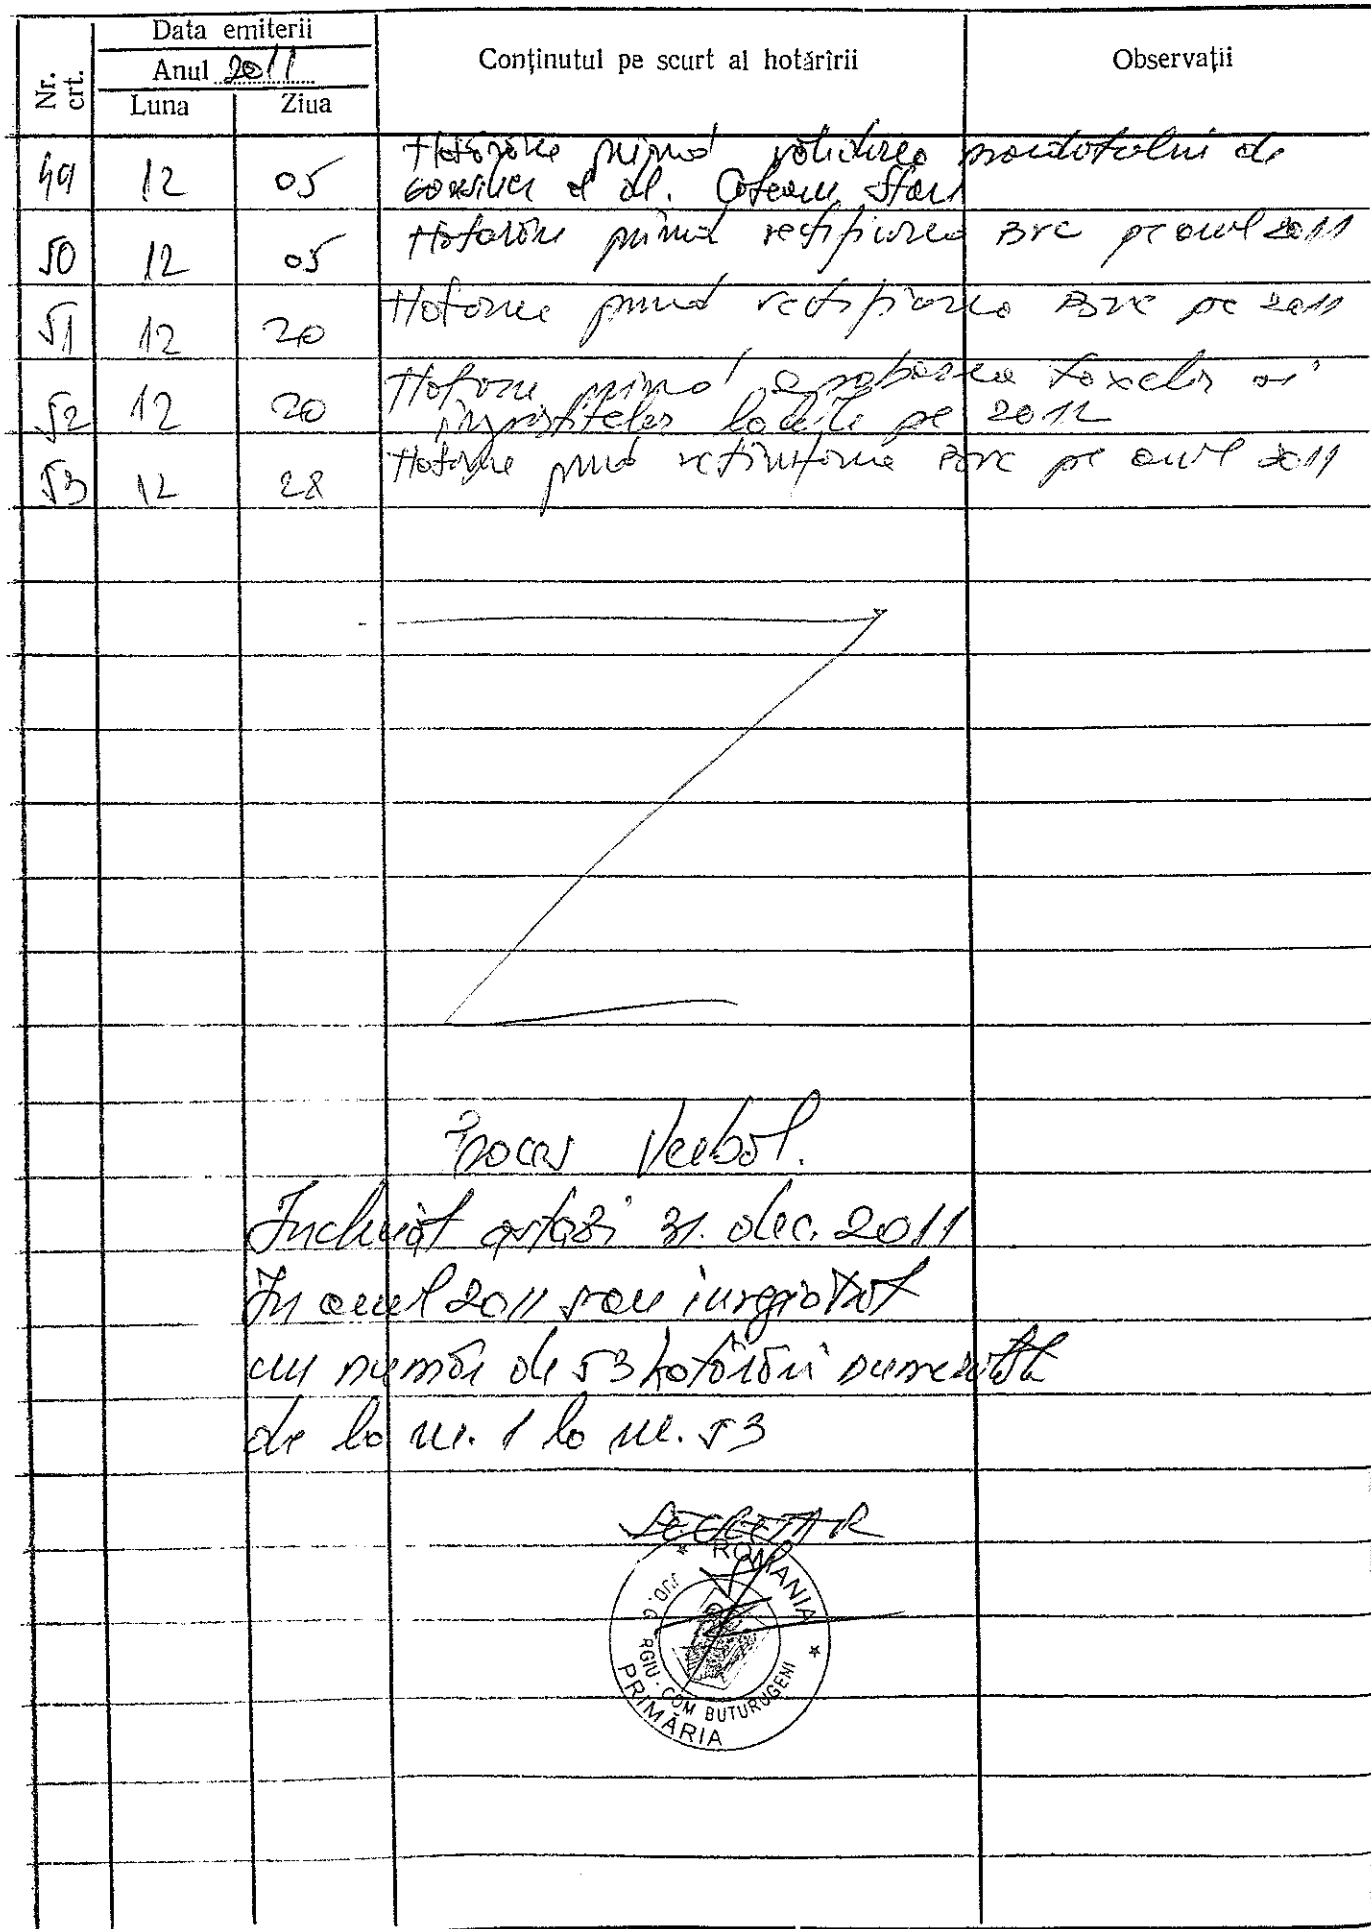 Nr. crt.
Data emiterii
Anul 2011
Luna
Ziua
Conținutul pe scurt al hotărîrii
Observații
49 12 05 Hotărâre privind validarea mandatului de
consilier al dl. Coteanu Stan
50 12 05 Hotărâre privind rectificarea BVC pe anul 2011
51 12 20 Hotărâre privind rectificarea BVC pe 2011
52 12 20 Hotărâre privind aprobarea taxelor și
impozitelor locale pe 2012
53 12 28 Hotărâre privind BVC pe anul 2011
Proces Verbal.
Încheiat astăzi 31. dec. 2011
În anul 2011 s-au înregistrat
un număr de 53 hotărâri numerotate
de la nr. 1 la nr. 53
SECRETAR
* ROMANIA *
JUD. G RGIU - COM BUTURUGENI
PRIMĂRIA